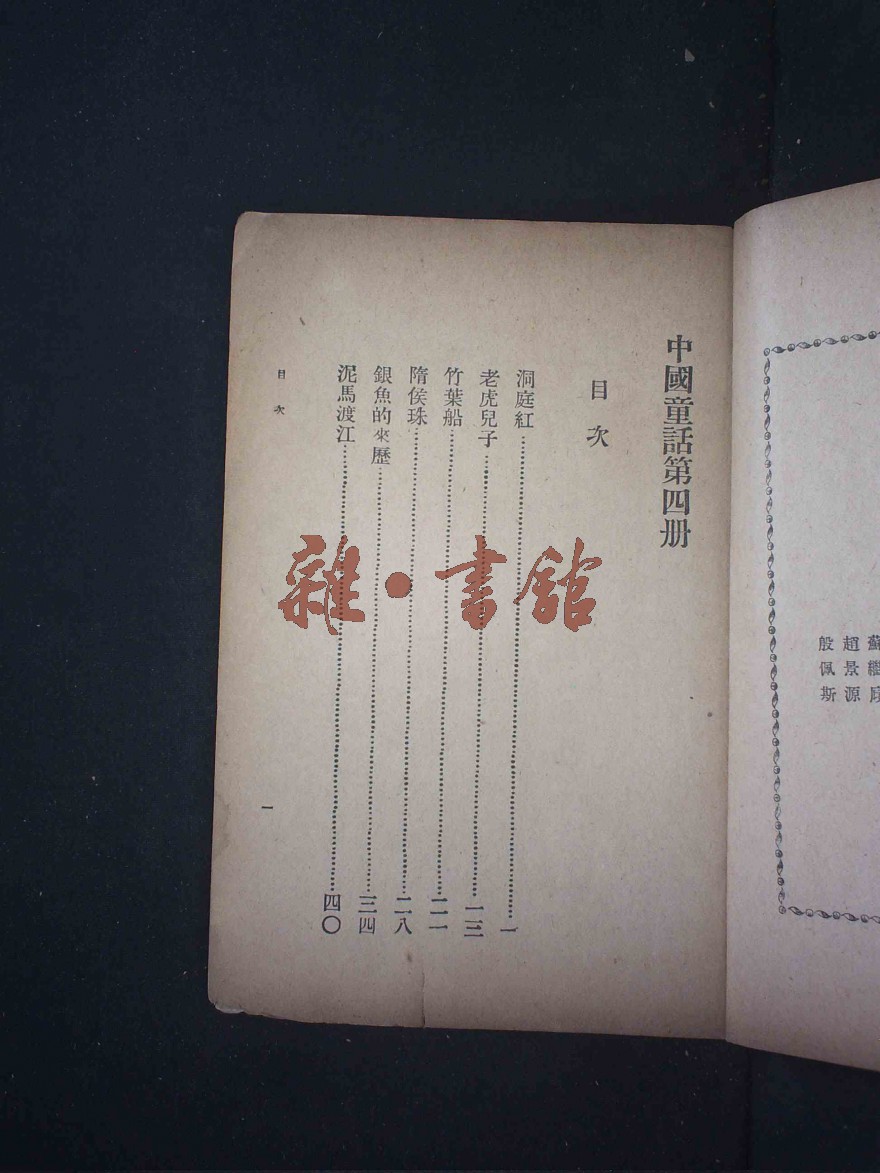 蘇繼
趙景源
殷佩斯
中國童話第四册
目次
洞庭紅……一
老虎兒子……一三
竹葉船……二一
隋侯珠……二八
銀魚的來歷……三四
泥馬渡江……四〇
目次
一
雜·書館